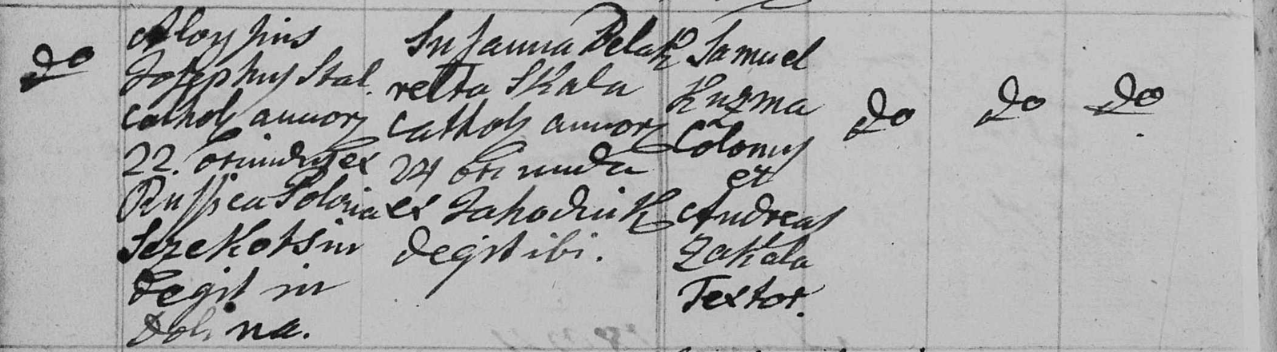 do
Aloysius
Josephus Stal.
cathol annor
22. oriundus ex
Russica Polonia
Szezekotsin
Degit in
Dolina.
Susanna Belak
relta Skala
cathol annor
24 oriunda
ex Jahodnik
degit ibi.
Samuel
Kuzma
Colonus
et
Andreas
Zakala
Textor.
do
do
do